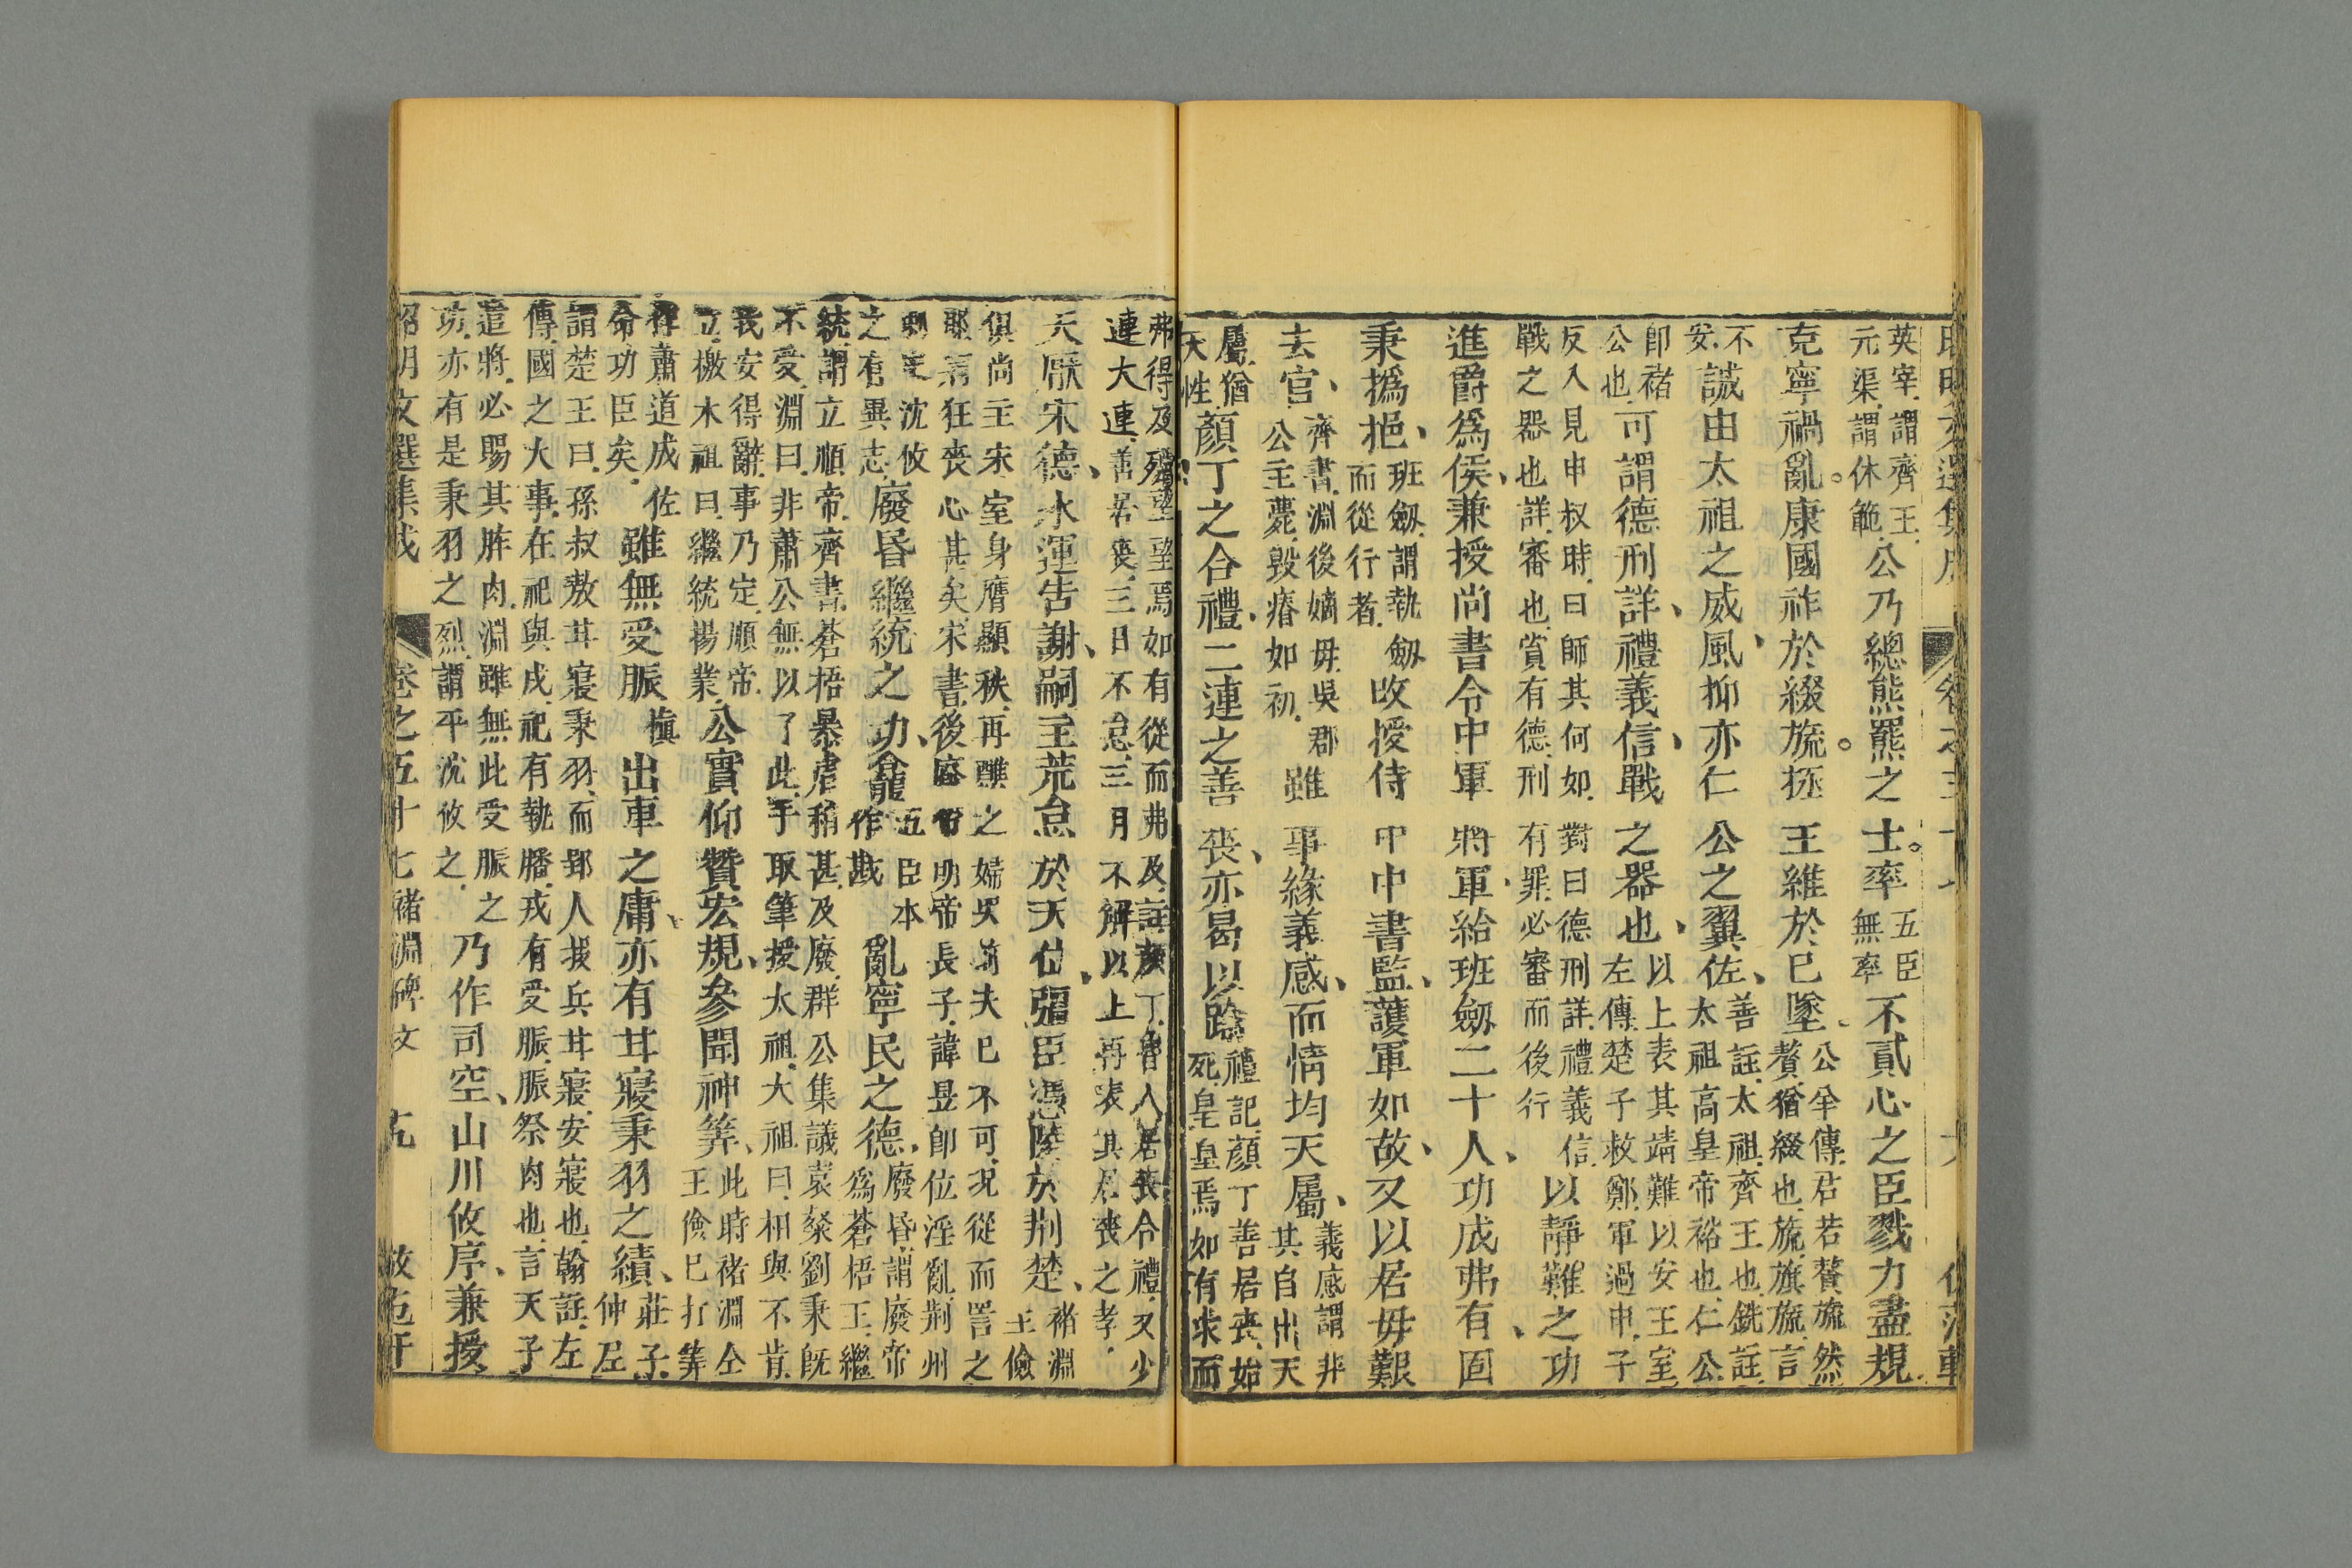 英宰.謂齊王.
元渠.謂休範.
公乃總熊羆之士。率
五臣
無率
不貳心之臣戮力盡規.
克寧禍亂。康國祚於綴旒。拯王維於已墜.
公羊傳.君若贅旒然
贅.猶綴也.旒.旗旒.言
不
安.
誠由太祖之威風、抑亦仁公之翼佐、
善註.太祖.齊王也.銑註.
太祖高皇帝裕也.仁公.
即褚
公也.
可謂德刑詳、禮義信、戰之器也、
以上表其靖難以安王室
左傳.楚子救鄭.軍過申.子
反入見申叔時.曰師其何如.對曰德刑詳.禮義信.
戰之器也.詳.審也.賞有德.刑有罪.必審而後行
以靜難之功
進爵爲侯、兼授尚書令中軍將軍.給班劒二十人、功成弗有、固
秉撝挹、
班劒.謂執劒
而從行者.
改授侍中中書監、護軍如故、又以居毋艱
去官、
齊書.淵後嫡毋.吳郡
公主薨.毀瘠如初.
雖事緣義感、而情均天屬、
義感謂非
其自出.天
屬.猶
天性
顏丁之合禮.二連之善喪、亦曷以踰
禮記.顏丁善居喪.始
死.皇皇焉如有求而
弗得.及殯.望望焉如有從而弗及.註.顏丁.魯人.居喪合禮.又少
連大連.善居喪.三日不怠.三月不解.以上再表其居喪之孝.
天厭宋德、水運告謝、嗣主荒怠於天位、彊臣憑陵於荆楚、
褚淵
王儉
俱尚主宋室.身膺顯秩.再醮之婦夫已不可.況從而詈之
耶.病狂喪心甚矣.宋書.後廢帝明帝長子.諱昱.即位淫亂.荆州
刺史沈攸
之有異志.
廢昏繼統之功、龕
五臣本
作戡
亂寧民之德.
廢昏.謂廢帝
爲蒼梧王.繼
統.謂立順帝.齊書.蒼梧暴虐稍甚.及廢.群公集議.袁粲劉秉旣
不受.淵曰.非蕭公無以了此.手取筆授太祖.太祖曰.相與不肯.
我安得辭.事乃定.順帝.
立.檄太祖曰.繼統揚業.
公實仰贊宏規、參聞神筭、
此時褚淵仝
王儉已打筭
蕭道成佐
命功臣矣.
雖無受脤
出車之庸、亦有甘寢秉羽之績、
莊子.
仲尼
謂楚王曰.孫叔敖甘寢秉羽.而郢人投兵.甘寢.安寢也.翰註.左
傳.國之大事.在祀與戎.祀有執膰.戎有受脤.脤祭肉也.言天子
遣將.必賜其胙肉.淵雖無此受脤之
功.亦有是秉羽之烈.謂平沈攸之.
乃作司空、山川攸序、兼授
昭明文選集成 卷之五十七 褚淵碑文